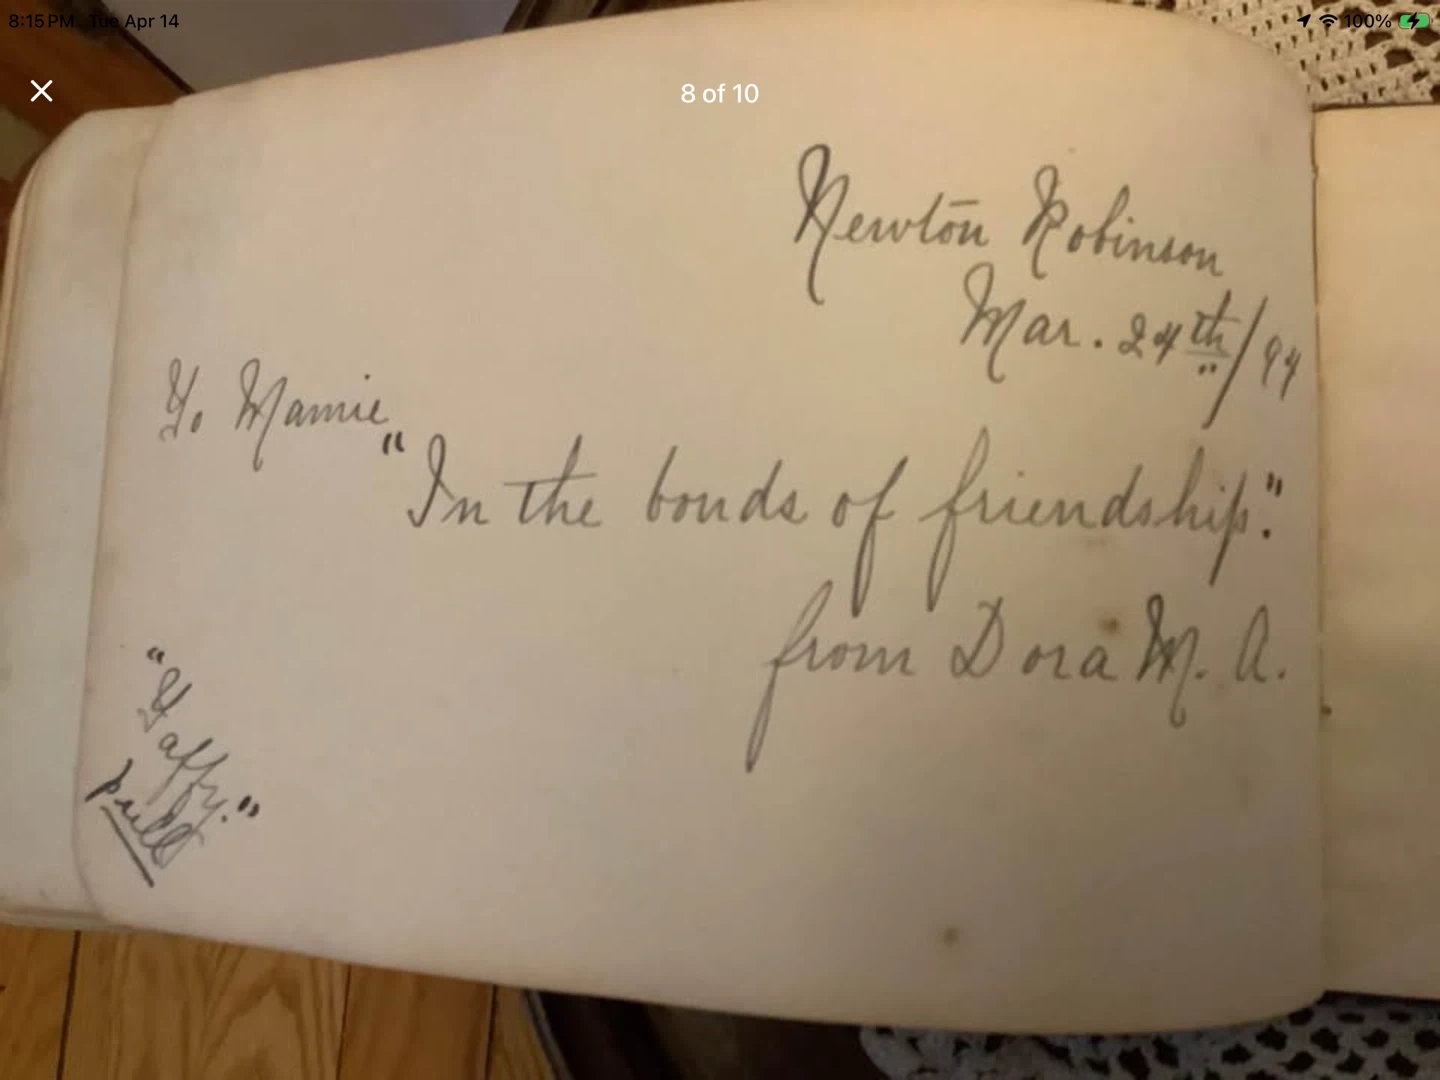 8:15 PM Tue Apr 14
100%
8 of 10
Newton Robinson
Mar. 24th/94
To Mamie
"In the bonds of friendship."
from Dora M. A.
"Taffy."
pull